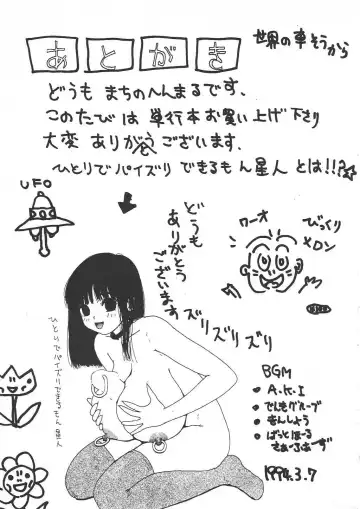 あとがき
世界の車そうから
どうも まちのへんまるです、
このたびは 単行本お買い上げ下さり
大変 ありがとうございます。
ひとりでパイズリ できるもん星人 とは!!?
UFO
どうも
ありがとう
ございます
ズリズリズリ
ワーオ
びっくり
メロン
ひとりでパイズリできるもん星人
BGM
・A.K.I
・でんきグルーブ
・きんしょう
・ばっとほーる
さあーふぁーず
1994.3.7